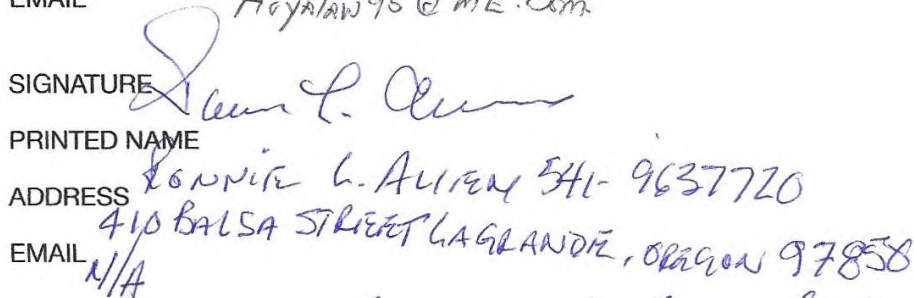 EMAIL @ME.COM
SIGNATURE
PRINTED NAME
RONNIE L. ALLEN 541-9637720
ADDRESS
410 BALSA STREET LAGRANDE, OREGON 97850
EMAIL N/A